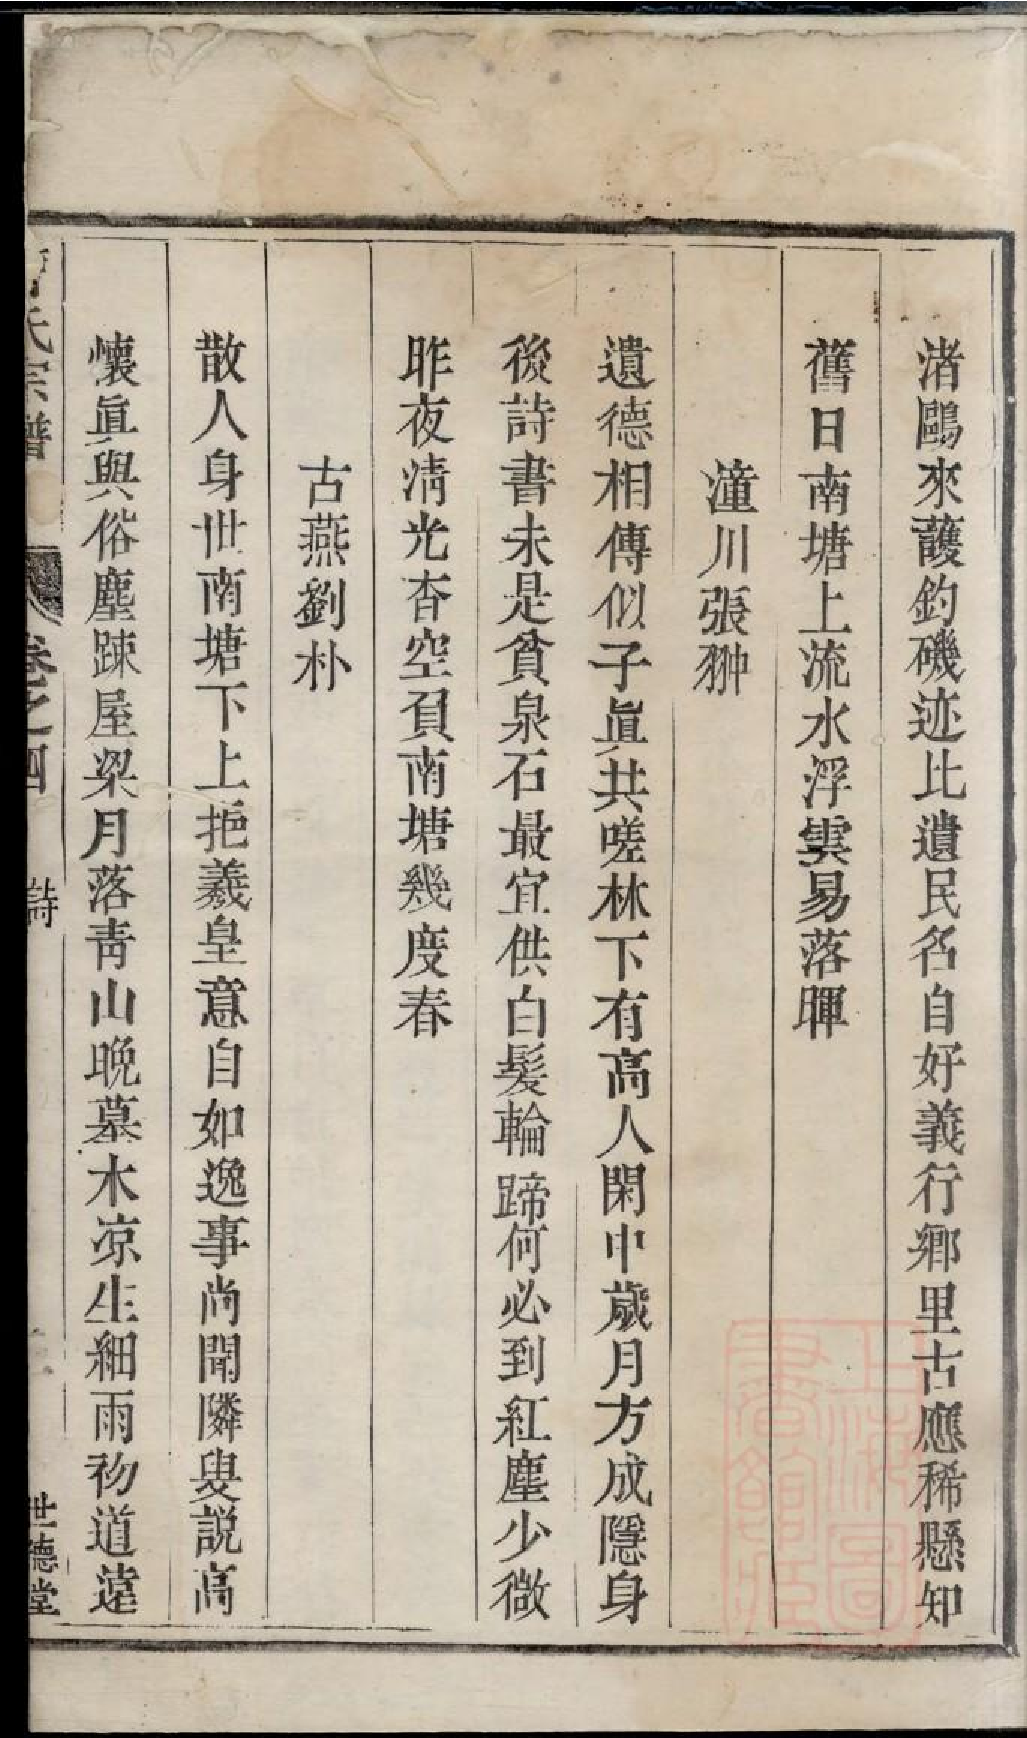 渚鷗來護釣磯迹比遺民名自好義行鄉里古應稀懸知
舊日南塘上流水浮雲易落暉
潼川張翀
遺德相傳似子眞共嗟林下有高人閑中歲月方成隱身
後詩書未是貧泉石最宜供白髮輪蹄何必到紅塵少微
昨夜淸光杳空負南塘幾度春
古燕劉朴
散人身世南塘下上挹羲皇意自如逸事尚聞隣叟説高
懷眞與俗塵踈屋梁月落靑山晚墓木凉生細雨初道遠
氏宗譜
卷之四
詩
世德堂
上海圖書館藏